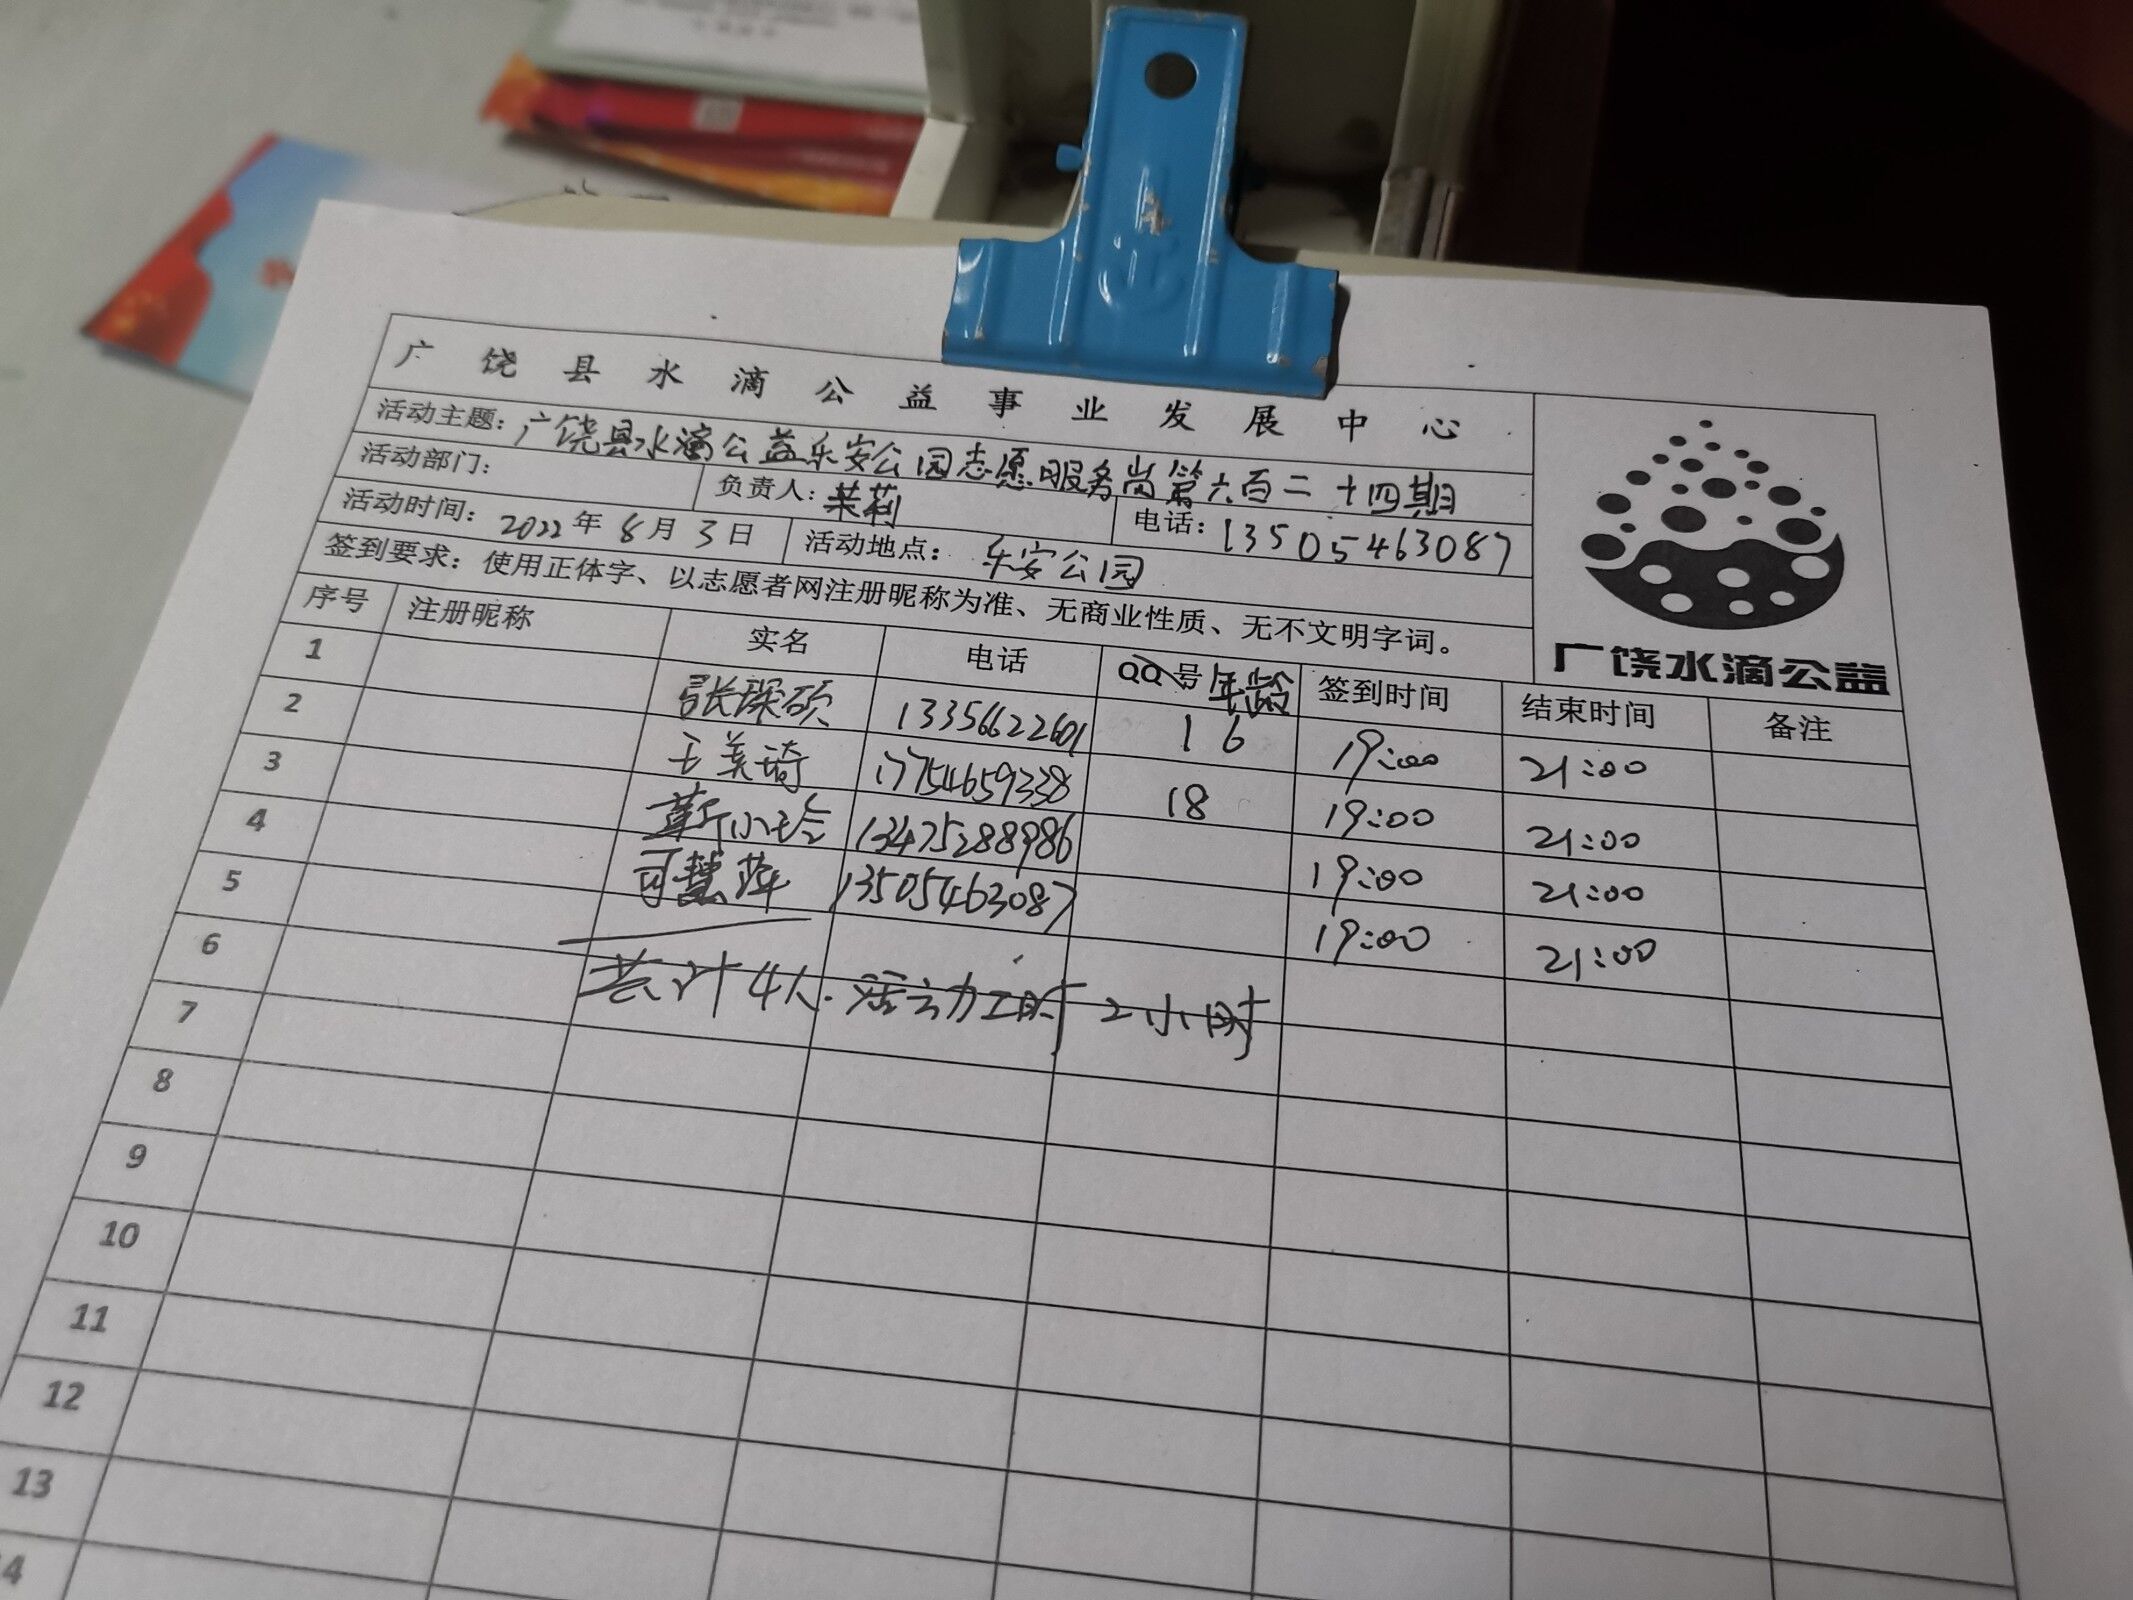 广饶县水滴公益事业发展中心
活动主题：广饶县水滴公益乐安公园志愿服务岗第六百二十四期
活动部门： 负责人：茉莉 电话：13505463087
活动时间：2022年8月3日 活动地点：乐安公园
签到要求：使用正体字、以志愿者网注册昵称为准、无商业性质、无不文明字词。
广饶水滴公益
序号 注册昵称 实名 电话 QQ号 年龄 签到时间 结束时间 备注
1 张琛硕 13356622601 16 19:00 21:00
2 王美琦 17754659338 18 19:00 21:00
3 靳小玲 13475288986 19:00 21:00
4 司慧萍 13505463087 19:00 21:00
5
6 共计4人.活动工时2小时
7
8
9
10
11
12
13
14